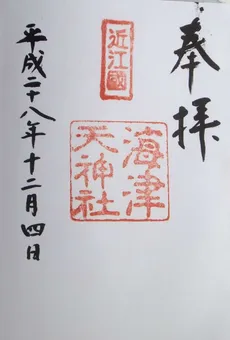 奉拝
近江國
海津
天神社
平成二十八年十二月四日